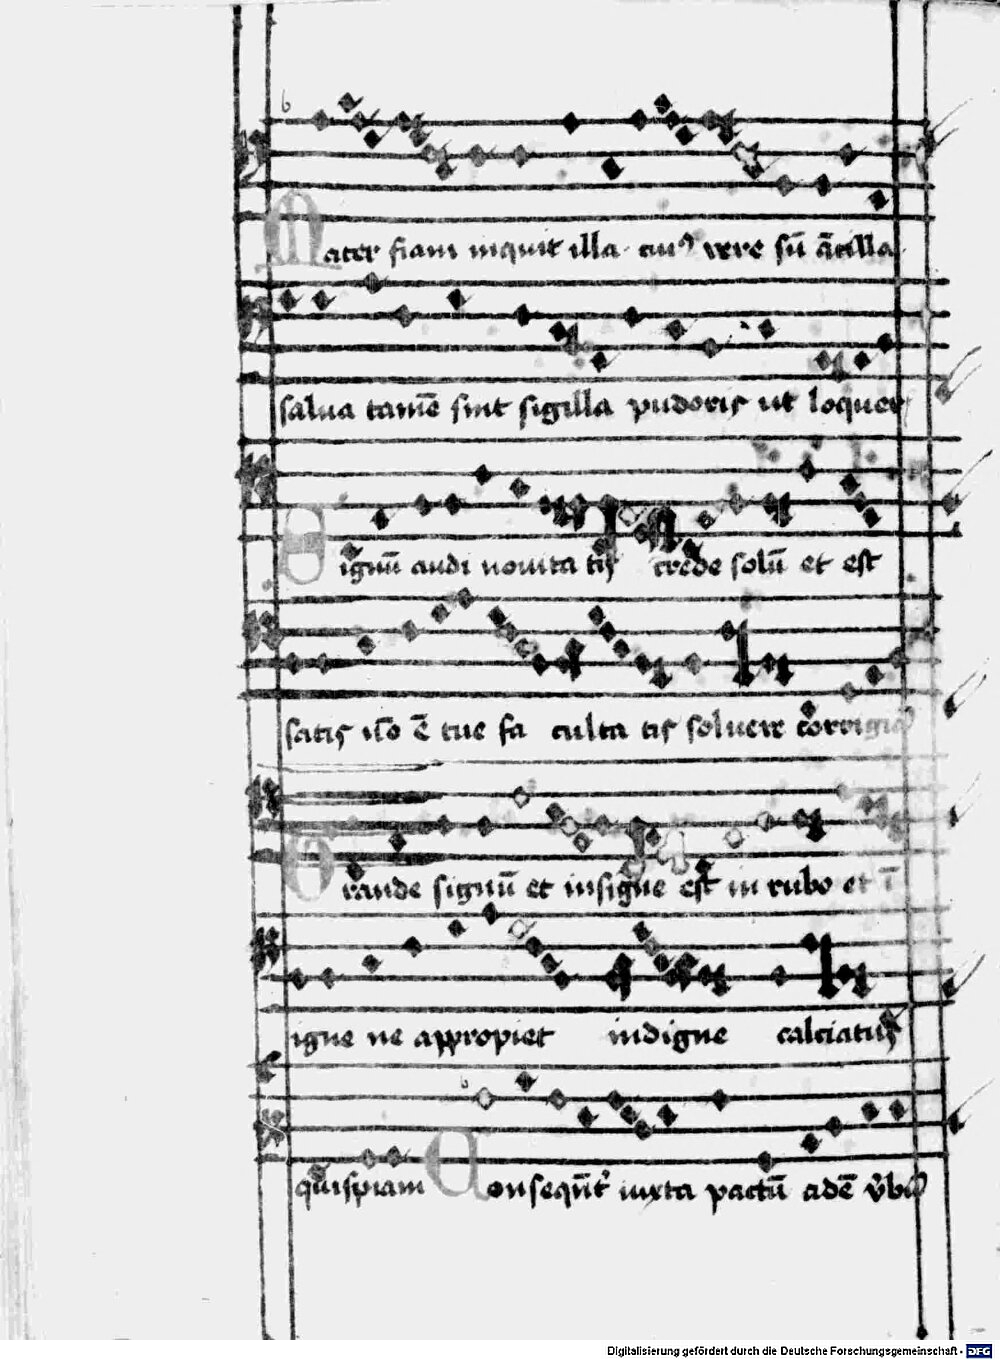 Mater fiam inquit illa cui⁹ vere sū ācilla
salua tamē sint sigilla pudoris ut loquer
Signū audi nouitatis crede solū et est
satis ē tue facultatis soluere corrigia
Grande signū et insigne est in rubo et ī
igne ne appropiet indigne calciatus
quispiam Conseqūt iuxta pactū adē
Digitalisierung gefördert durch die Deutsche Forschungsgemeinschaft - DFG